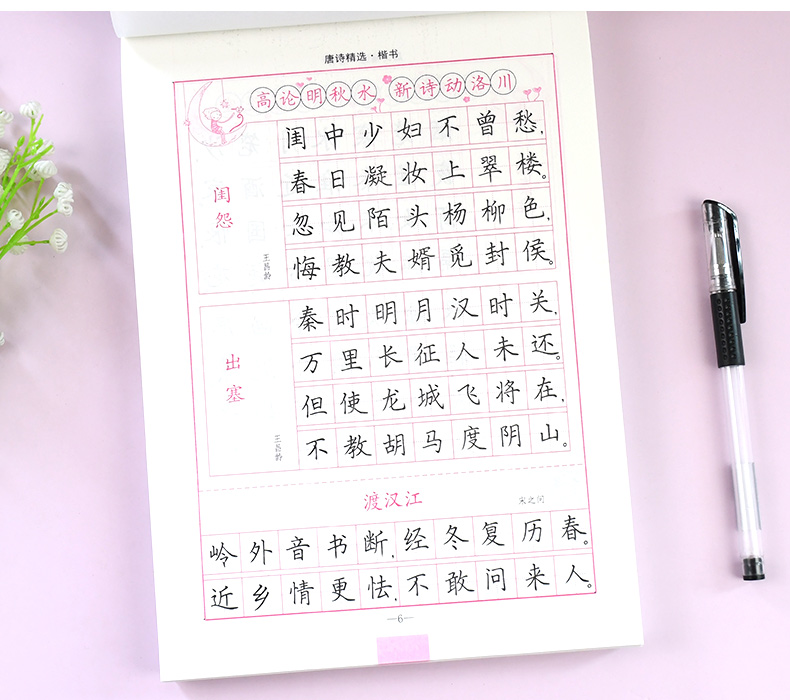 唐诗精选·楷书
高论明秋水 新诗动洛川
闺怨
王昌龄
闺中少妇不曾愁,
春日凝妆上翠楼。
忽见陌头杨柳色,
悔教夫婿觅封侯。
出塞
王昌龄
秦时明月汉时关,
万里长征人未还。
但使龙城飞将在,
不教胡马度阴山。
渡汉江
宋之问
岭外音书断,经冬复历春。
近乡情更怯,不敢问来人。
—6—